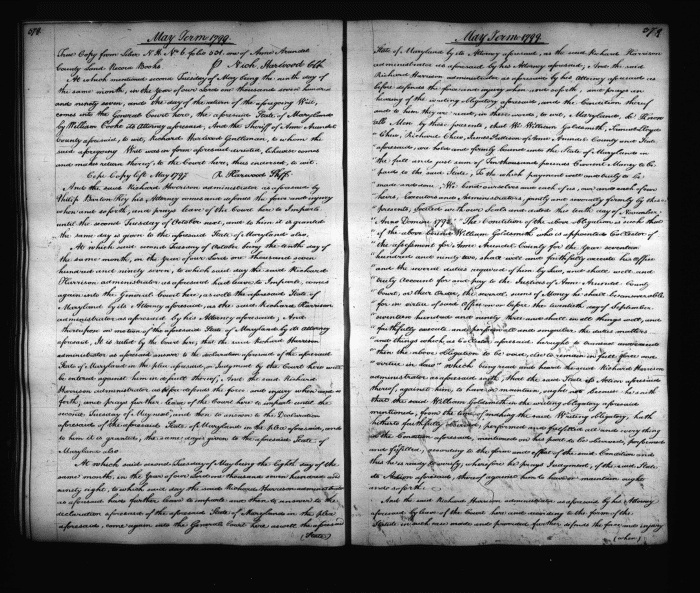 272
May Term 1799.
True Copy from Liber N. H. No 6. folio 501. one of Anne Arundel
County Land Record Books
P Nich. Harwood Clk
At which mentioned second Tuesday of May being the ninth day of
the same month, in the Year of our Lord one thousand seven hundred
and ninety seven, and the day of the return of the aforegoing Writ,
comes into the General Court here, the aforesaid State of Maryland
by William Cooke its Attorney aforesaid; And the Sheriff of Anne Arundel
County aforesaid, to wit, Richard Harwood Gentleman, to whom the
said aforegoing Writ was in form aforesaid directed, likewise comes
and makes return thereof to the Court here, thus endorsed, to wit,
Cepi Copy left May 1797 R. Harwood Shff.
And the said Richard Harrison administrator as aforesaid by
Philip Barton Key his Attorney comes and defends the force and injury
when and soforth, and prays leave of the Court here to Imparle
until the second Tuesday of October next, and to him it is granted
the same day is given to the aforesaid State of Maryland also.
At which said second Tuesday of October being the tenth day of
the same month, in the Year of our Lord one thousand seven
hundred and ninety seven, to which said day the said Richard
Harrison administrator as aforesaid had leave to Imparle, comes
again into the General Court here, as well the aforesaid State of
Maryland by its Attorney aforesaid, as the said Richard Harrison
administrator as aforesaid by his Attorney aforesaid; And
thereupon on motion of the aforesaid State of Maryland by its attorney
aforesaid, It is ruled by the Court here, that the said Richard Harrison
administrator as aforesaid answer to the declaration aforesaid of the aforesaid
State of Maryland in the plea aforesaid, or Judgment by the Court here will
be entered against him on default thereof; And the said Richard
Harrison administrator as aforesaid defends the force and injury when and so
forth, and prays further leave of the Court here to imparle until the
second Tuesday of May next, and then to answer to the Declaration
aforesaid of the aforesaid State of Maryland in the plea aforesaid, and
to him it is granted, the same day is given to the aforesaid State of
Maryland also
At which said second Tuesday of May being the Eighth day of the
same month, in the Year of our Lord one thousand seven hundred and
ninety eight, to which said day the said Richard Harrison administrator
as aforesaid had further leave to imparle and then to answer to the
declaration aforesaid of the aforesaid State of Maryland in the plea
aforesaid, comes again into the General Court here as well the aforesaid
(State)
May Term 1799.
273
State of Maryland by its Attorney aforesaid, as the said Richard Harrison
administrator as aforesaid by his Attorney aforesaid; And the said
Richard Harrison administrator as aforesaid by his Attorney aforesaid as
before defends the force and injury when and soforth, and prays
hearing of the writing Obligatory aforesaid, and the Condition thereof
and to him they are read, in these words, to wit, Maryland, sc. Know
all Men by these presents, that We William Goldsmith,
Chew, Richard Chew, of Anne Arundel County and State
aforesaid, are held and firmly bound unto the State of Maryland in
the full and just sum of Ten thousand pounds Current Money to be
paid to the said State, To the which payment well and truly to be
made and done, We bind ourselves and each of us, our and each of our
heirs, Executors and Administrators, jointly and severally firmly by these
presents, Sealed with our Seals and dated this tenth day of November,
Anno Domini 1792. The Condition of the above Obligation is such that
if the above bound William Goldsmith who is appointed Collector of
the assessment for Anne Arundel County for the Year seventeen
hundred and ninety two, shall well and faithfully execute his Office
and the several duties required of him by law, and shall well and
truly Account for and pay to the Justices of Anne Arundel County
Court, or their Order, the several sums of Money he shall be answerable
for in virtue of said Office on or before the twentieth day of September
seventeen hundred and ninety three and shall in all things well, and
faithfully execute and perform all and singular the duties matters
and things which as Collector aforesaid
then the above obligation to be void, else to remain in full force and
virtue in law" Which being read and heard the said Richard Harrison
administrator as aforesaid saith, that the said State its Action aforesaid
thereof, against him, to have or maintain, ought not because he saith
that the said William Goldsmith in the writing obligatory aforesaid
mentioned, from the time of making the said Writing Obligatory, hath
hitherto faithfully performed and fulfilled all and every thing
in the Condition aforesaid, mentioned on his part to be observed, performed
and fulfilled, according to the form and effect of the said Condition and
this he is ready to verify, wherefore he prays Judgment, if the said State
its Action aforesaid, thereof against him to have or maintain ought
and soforth.
And the said Richard Harrison administrator as aforesaid by his Attorney
aforesaid by leave of the Court here and according to the form of the
Statute in such case made and provided further defends the force and injury
(when)